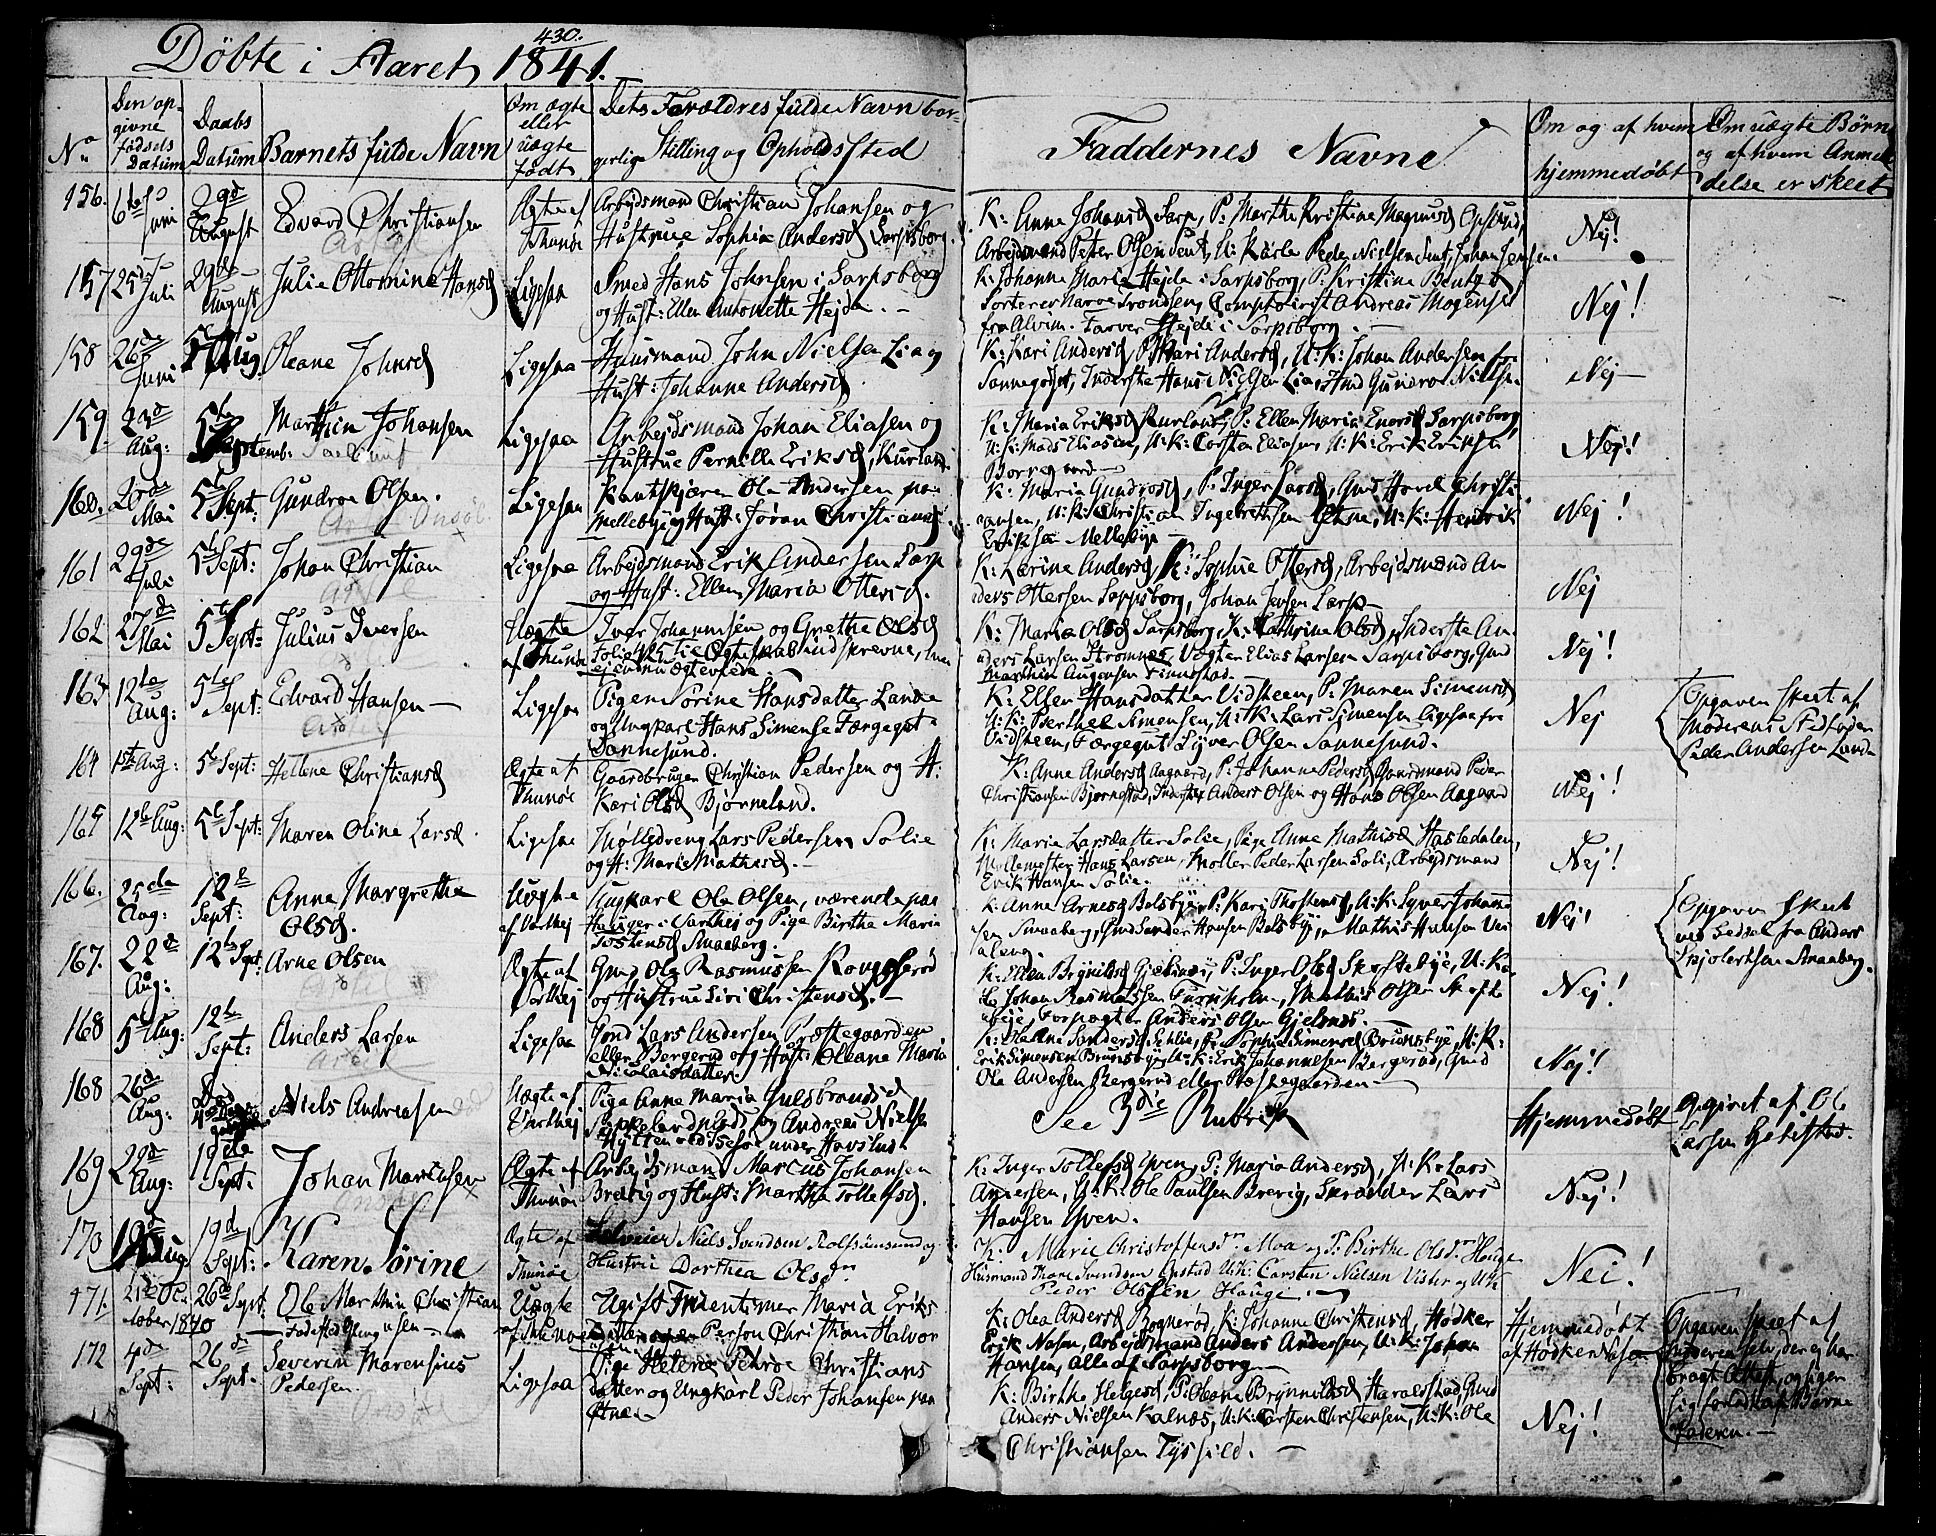 430.
Döbte i Aaret 1841.
No
Den op-
givne
födsels
Datum
Daabs
Datum
Barnets fulde Navn
Om ægte
eller
uægte
født
Dets Forældres fulde Navn bor-
gerlig Stilling og Opholdssted
Faddernes Navne
Om og af hvem
hjemmedøbt
Om uægte Børn
og af hvem Anmel
delse er skeet
156. 6te Juni 29d August Edvard Christiansen Ægte af Thunöe Arbejdsmand Christian Johansen og
Hustrue Sophia Andersd Sarpsborg.
K: Anne Johansd Sarp, P: Marthe Kristine Magnusd Opsund,
Arbejdsmand Peter Olsen Sent, U: Karle Peder Nielsen Sent, Johan Jensen.
Nej!
157 25de Juli 29de August Julie Ottomine Hansd Ligesaa Smed Hans Johnsen i Sarpsborg
og Hust: Ellen Antonette Hejde.
K: Johanne Maria Hejde i Sarpsborg, P: Kristine
Trondsen, Comptoirist Andreas Mogensen
fra Alvim. Farver Hejde i Sarpsborg.
Nej!
158 26de Juni 5t Oleane Johnsd Ligesaa Huusmand John Nielsen Lia og
Hust: Johanne Andersd.
K: Kari Andersd, P: Mari Andersd, U: K: Johan Andersen fra
Sannesogt, Inderste Hans Nielsen Lia, Gunerus Nielse.
Nej
159. 23d Aug: 5te Septemb: Marthin Johansen Ligesaa Arbejdsmand Johan Eliasen og
Hustrue Pernille Eriksd, Kurland.
K: Maria Eriksd Kurland, P: Ellen Maria Sarpsborg,
U: K: Mads Eliasen, U: K: Torsten Eliasen, U: K: Erik Eriksen
Borregaard
Nej!
160. 20de Mai 5te Sept: Gundroe Olsen. Ligesaa Ole Andersen paa
Mellebye og Hust: Jöran Christians
K: Maria Gundrosd, P: Inger Larsd, Christi-
ansen, U: K: Christian Ingebretsen, U: K: Hendrik
Eriksen Mellebye
Nej!
161 29de Juli 5te Sept: Johan Christian Ligesaa Arbejdsmand Erik Andersen Sarp
og Hust: Ellen Maria Ottersd.
K: Karine Andersd, K: Sophie Ottersd, Arbejdsmand An-
ders Ottersen Sarpsborg, Johan Jensen Sarp
Nej
162 27de Mai 5te Sept: Julius Iversen Uægte af Thunöe Iver Johannesen og Grethe Olsd
Folio 425 til Ægteskab indskrevne, men
ej endnu ægteviede
K: Maria Olsd Sarpsborg, K: Cathrine Olsd, Inderste An-
ders Larsen Strømnes, Vægter Elias Larsen Sarpsborg, Gmd
Marthin Augensen
Nej!
163 12te Aug: 5te Sept: Edvard Hansen Ligesaa Pigen Sorine Hansdatter Lande
og Ungkarl Hans Simensen Færgegot
Sannesund.
K: Elsen Hansdatter Vidsteen, P: Maren Simensd
U: K: Berthel Simensen, U: K: Lars Simensen Ligesaa fra
Vidsteen, Færgegut Syver Olsen Sannesund.
Nej
Opgaven skeet af
Moderens Stedfader
Peder Andersen Lande
164 1ste Aug: 5te Sept: Hellene Christiansd Ægte af Thunöe Gaardbruger Christian Pedersen og H:
Kari Olsd Bjørneland.
K: Anne Andersd Aagaard, P: Johanne Pedersd Gaardmand Peder
Christiansen Bjørnestad, Inderste Anders Olsen og Hans Olsen Aagaard
Nej!
165 12te Aug: 5te Sept: Maren Oline Larsd. Ligesaa Mølledreng Lars Pedersen Solie
og H: Marie Mathisd.
K: Maria Larsdatter Solie, Pige Anne Mathisd Hasledalen,
Møllemester Hans Larsen, Møller Peder Larsen Soli, Arbejdsmand
Erik Hansen Solie.
Nej!
166. 25de Aug: 12te Sept: Anne Margrethe
Olsd. Uægte af Varthej Ungkarl Ole Olsen, værende paa
Hauger i Varthej og Pige Birthe Maria
Tostensd Smaaberg.
K: Anne Arnesd Belsbye, P: Kari Thostensd, U: K: Syver Johanne
sen Smaaberg, Gmd Sander Hansen Belsbye, Mathis Hansen
Nej!
Opgaven skeet
ved Seddel fra Anders
Smaaberg.
167. 22d Aug: 12te Sept: Arne Olsen Ægte af Varthej Gmd Ole Rasmussen Kongsrød
og Hustrue Siri Christensd.
K: Brynilsd Gjelsnes, P: Inger Olsd Skoftebye, U: K:
Johan Rasmussen Furuholm, Mathis Olsen Skofte
bye, Forpagter Anders Olsen Gjelsnes.
Nej!
168 5te Aug: 12te Sept: Anders Larsen Ligesaa Gmd Lars Andersen Præstegaarden
eller Bergerud og Hust: Oleane Maria
Nicolaisdatter.
K: Oleane Sandersd, P: Sophie Simensd Brunsbye, U: K:
Erik Simensen Brunsbye, U: K: Erik Johannesen Bergerud, Gmd
Ole Andersen Bergerud eller Præstegaarden
Nej!
168 26de Aug: Niels Andreasen Uægte af Varthej Pige Anne Maria Gulsbrandsd
og Andreas Nielsen
Hytten ved Isesøe under Hafslund
See 3die Rubrik
Hjemmedøbt
Opgivet af Ole
Larsen Getestad.
169 22d Aug: 19de Sept. Johan Marcusen Ægte af Thunöe Arbejdsmand Marcus Johansen
Brevig og Hust: Martha Tollefsd.
K: Inger Tollefsd Yven, P: Maria Andersd, U: K: Lars
Andersen, U: K: Ole Paulsen Brevig, Skrædder Lars
Hansen Yven.
Nej!
170 19d Aug 19d Sept: Karen Sørine Ægte af Thunöe Selveier Niels Svendsen Rolfsøesund og
Hustrue Dorthea Olsdr.
K. Marie Christoffersdr. Moa og P: Birthe Olsdr. Hauge
Husmand Thore Svendsen Opstad U.K. Carsten Nielsen Visler og U.K.
Peder Olssen Hauge.
Nei!
171. 21de October 1840 26de Sept: Ole Marthin Christian
sen Uægte af Thunøe Ugift Maria Eriks
Person Christian Halvor
K: Olea Andersd Bognerød, K: Johanne Christensd, Hødker
Erik Nasen, Arbejdsmand Anders Andersen, U: K: Johan
Hansen, alle af Sarpsborg
Hjemmedøbt
af Hødker Nasen
Opgaven skeet af
Moderen selv, der ej har
bragt Attest, og siger
sig forladt af Barne
faderen.
172 4de Sept: 26de Sept. Severin Marensius
Pedersen. Ligesaa Pige Helene Christians
datter og Ungkarl Peder Johansen paa
K: Birthe Helgesd, P: Oleane Brynnildsd Haraldstad, Gmd
Anders Nielsen Kalnæs, U: K: Carsten Christensen, U: K: Ole
Christiansen Tysfild.
Nej!